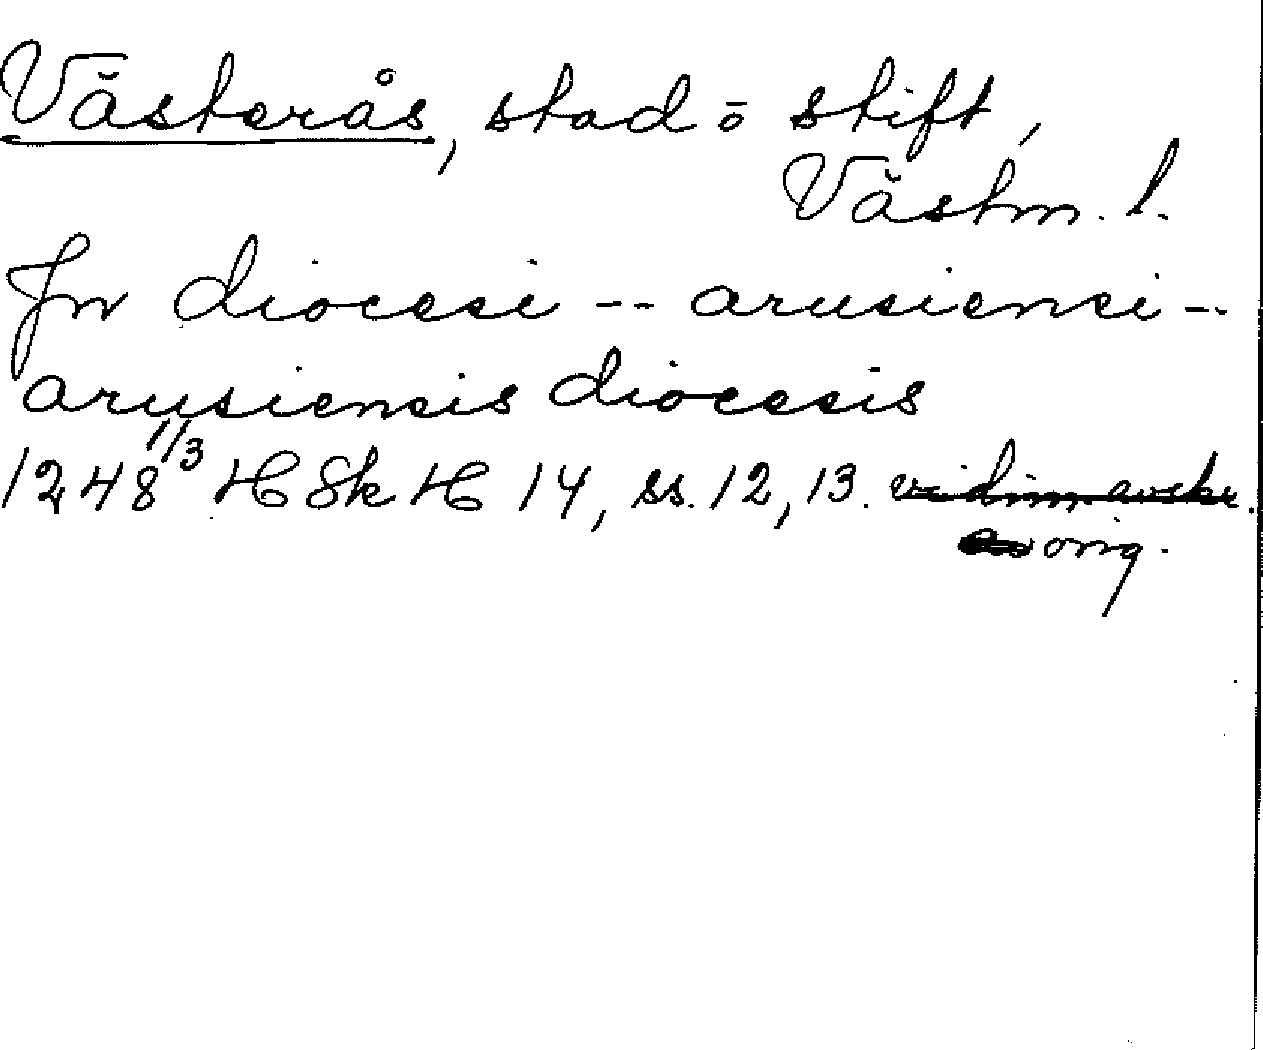 Västerås, stad ō stift,
Västm. l.
Jn diocesi -- arusiensi --
arusiensis diocesis
1248 1/3 H Sk H 14, ss. 12, 13. vidim. avskr.
orig.